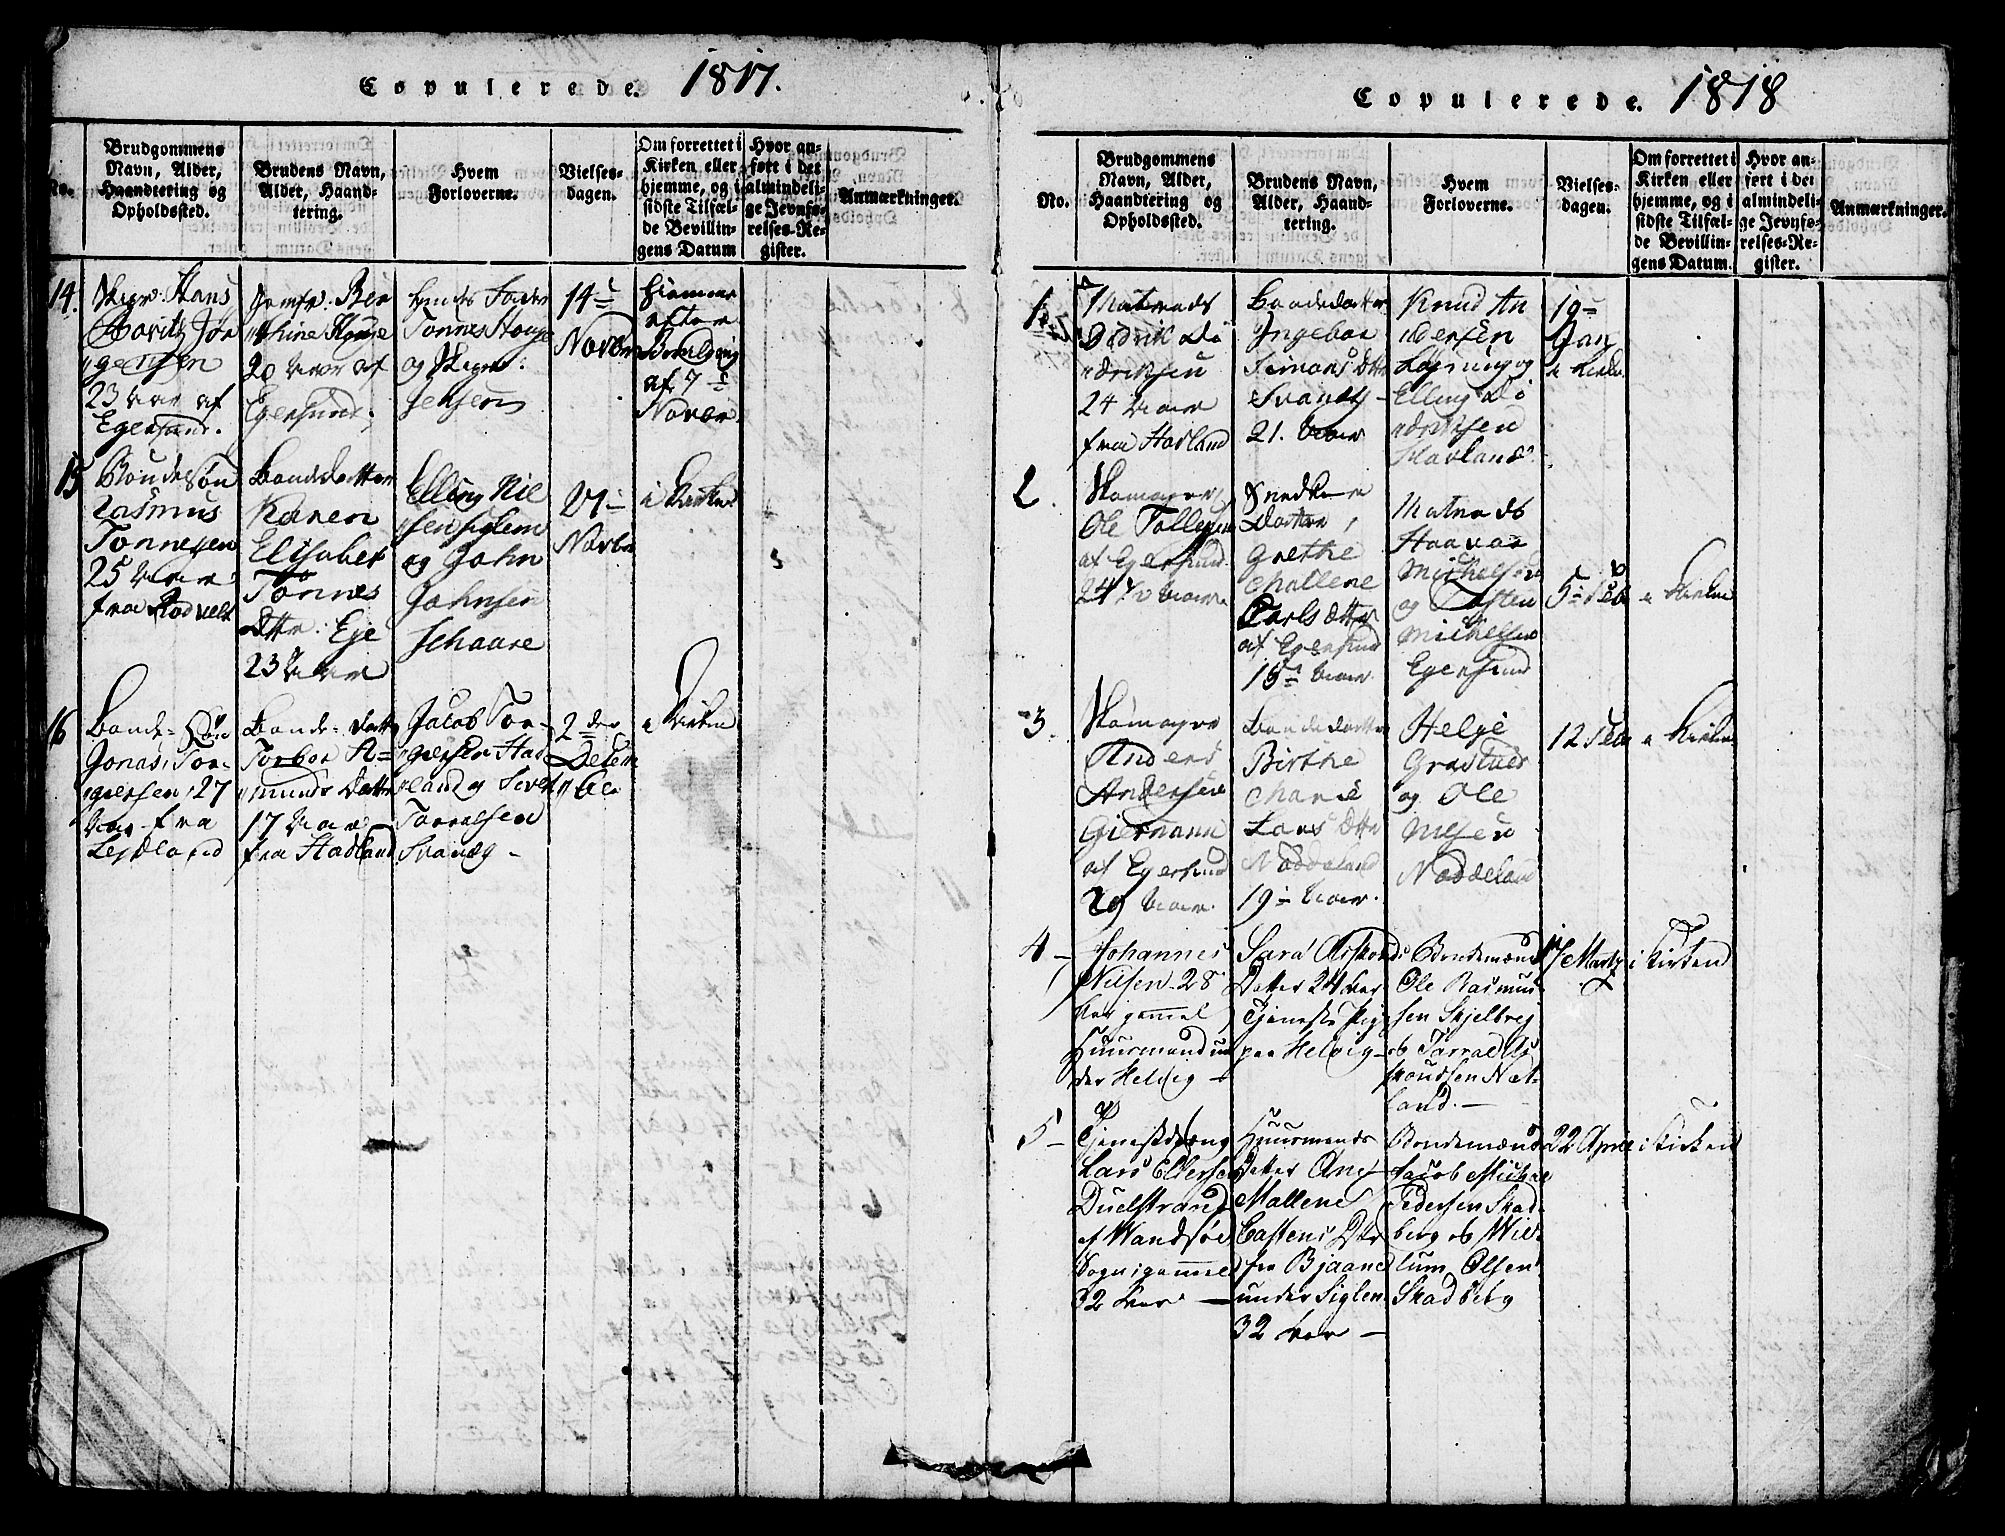 Copulerede. 1817.
No.
Brudgommens
Navn, Alder,
Haandtering og
Opholdssted.
Brudens Navn,
Alder, Haand-
tering.
Hvem
Forloverne.
Vielses-
dagen.
Om forrettet i
Kirken eller
hjemme, og i
sidste Tilfæl-
de Bevillin-
gens Datum
Hvor an-
ført i det
almindeli-
ge Jevnfø-
relses-Re-
gister.
Anmærkninger.
14.
Skipr: Hans
Jør
gensen
23 Aar af
Egersund.
Jomfr: Ber
20 Aar af
Egersund.
hendes Fader
Tønnes
og Skipr:
Jensen
14de
Novbr
hiemme
efter
af 7de
Novbr
15
Bondesøn
Rasmus
Tønnesen
25 Aar
fra
Bondedatter
Karen
Elisabet
Tønnes
Dttr. Eje
23 Aar
Elling Niel
sen Siglem
og John
Johnsen
Schaare
27
Novbr
i Kirken
16
Bonde-Søn
Jonas Tor-
gersen 27
Aar fra
Bonde-Datt
Torbor A=
munds Datter
17 Aar
fra Hadland
Jacob Tor-
gersen Had
land og Sivert
Torralsen
Svanæs
2den
Decem
i Kirken
Copulerede. 1818
No.
Brudgommens
Navn, Alder,
Haandtering og
Opholdssted.
Brudens Navn,
Alder, Haand-
tering.
Hvem
Forloverne.
Vielses-
dagen.
Om forrettet i
Kirken eller
hjemme, og i
sidste Tilfæl-
de Bevillin-
gens Datum.
Hvor an-
ført i det
almindeli-
ge Jevnfø-
relses-Re-
gister.
Anmærkninger.
1.
Matros
Didrik Di
driksen
24 Aar
fra Havland
Bondedatter
Ingebor
Simons Dttr
21. Aar
Knud An
dersen
og
Elling Di
driksen
Havland
19
Jan
i Kirken
2.
Skomager
Ole Tollefsen
af Egersund
Snedker
Datter
Grethe
Mallene
Carls Dttr
af Egersund
Aar
Matros
Haavar
Michelsen
og Casten
Michelsen
Egersund
5 Feb
i Kirken
3.
Skomager
Anders
Andersen
af Egersund
29 Aar
Bondedatter
Birthe
Marie
Lars Dttr
Nøddeland
19 Aar.
Helje
og Ole
Nilsen
Nøddeland
12 Feb
i Kirken
4
Johannes
Nilsen 28
Aar gamel
Huusmand un
der Helvig
Sara
Datter 24 Aar
Tjeneste Pige
paa Helvig
Bondemænd
Ole Rasmun
sen Skjelbrej
ob Torrald As
moudsen Net-
land.
Marty
i Kirken
5
Tjenestdreng
Lars
af
Sogn gamel
32 Aar
Huusmands
Datter Ane
Mallene
Castens Dtr
fra Bjaane
under Siglen
32 Aar
Bondemænd
Jacob Michae
Pedersen Skad
berg ob Wil-
lum Olsen
Skadberg
22 April
i Kirken